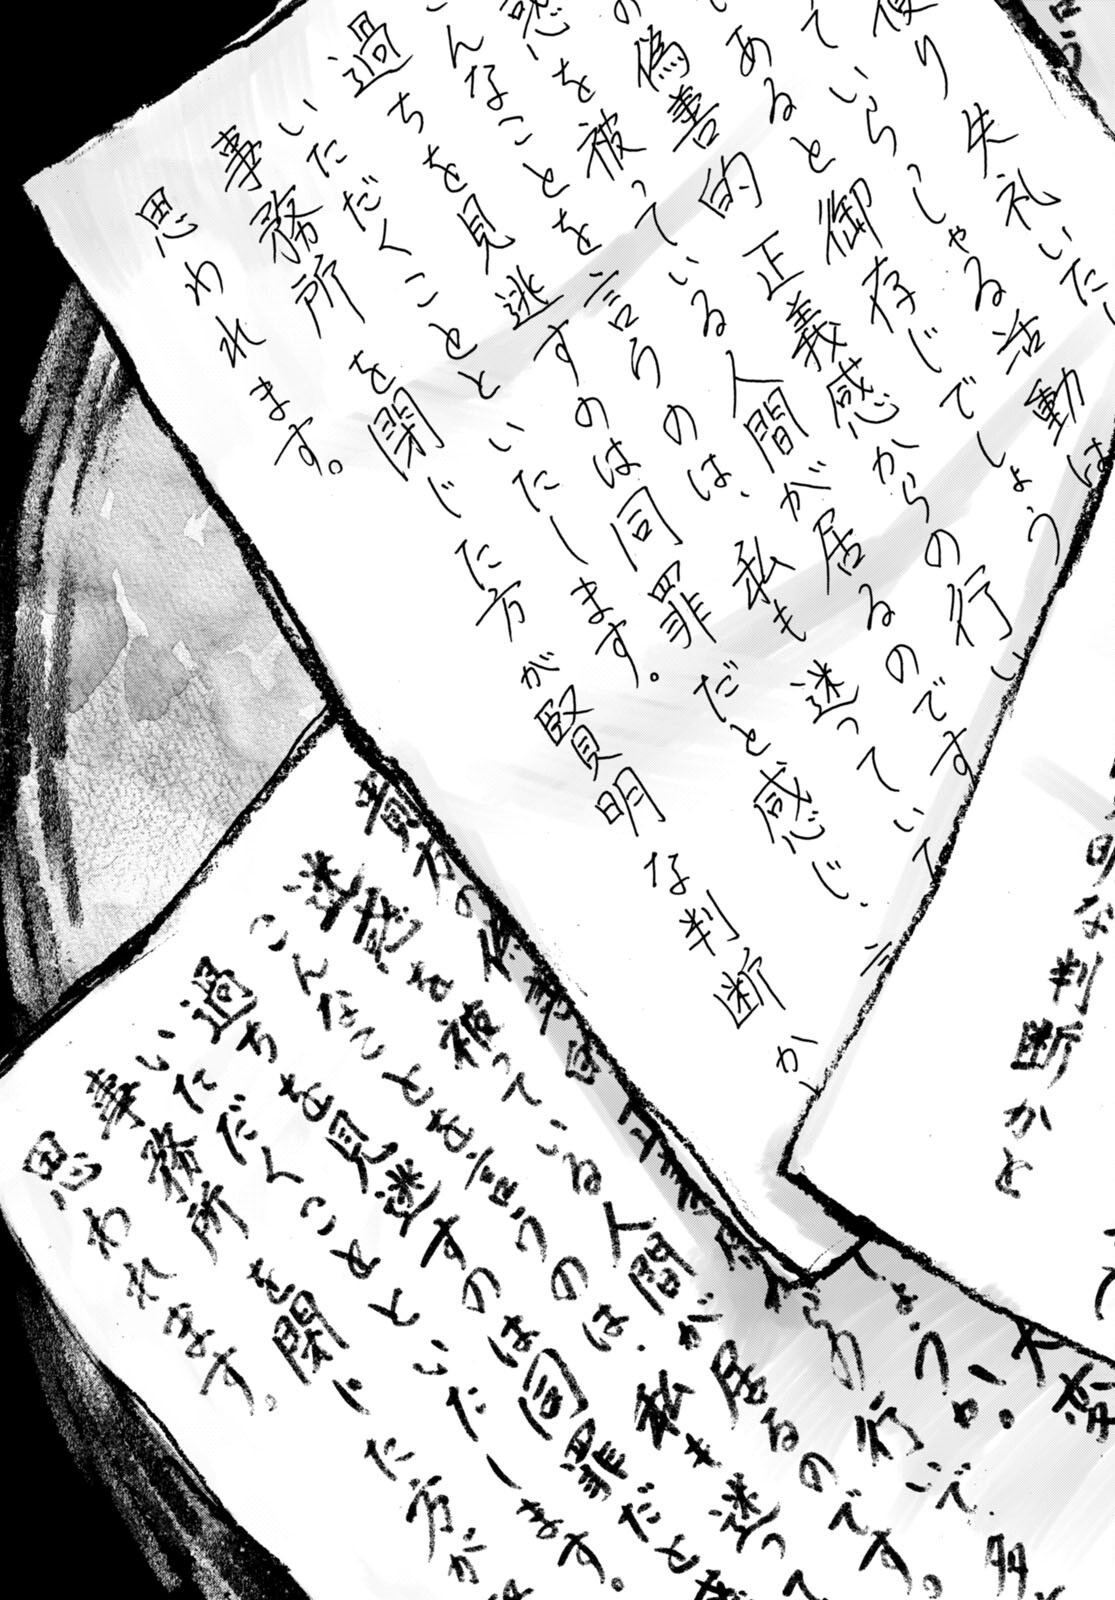 便り失礼いた
ていらっしゃる活動は
あると御存じでしょう
の偽善的正義感からの行い
惑を被っている人間が居るのです
こんなことを言うのは、私も迷ってい
過ちを見逃すのは同罪だと感じ、言
いただくことといたします。
事務所を閉じた方が賢明な判断か
思われます。
明な判断かと
大変
ょうか。
貴方の偽善的正義感からの行いで、多
迷惑を被っている人間が居るのです。
こんなことを言うのは、私も迷って
過ちを見逃すのは同罪だと
いただくことといたします。
事務所を閉じた方が
思われます。